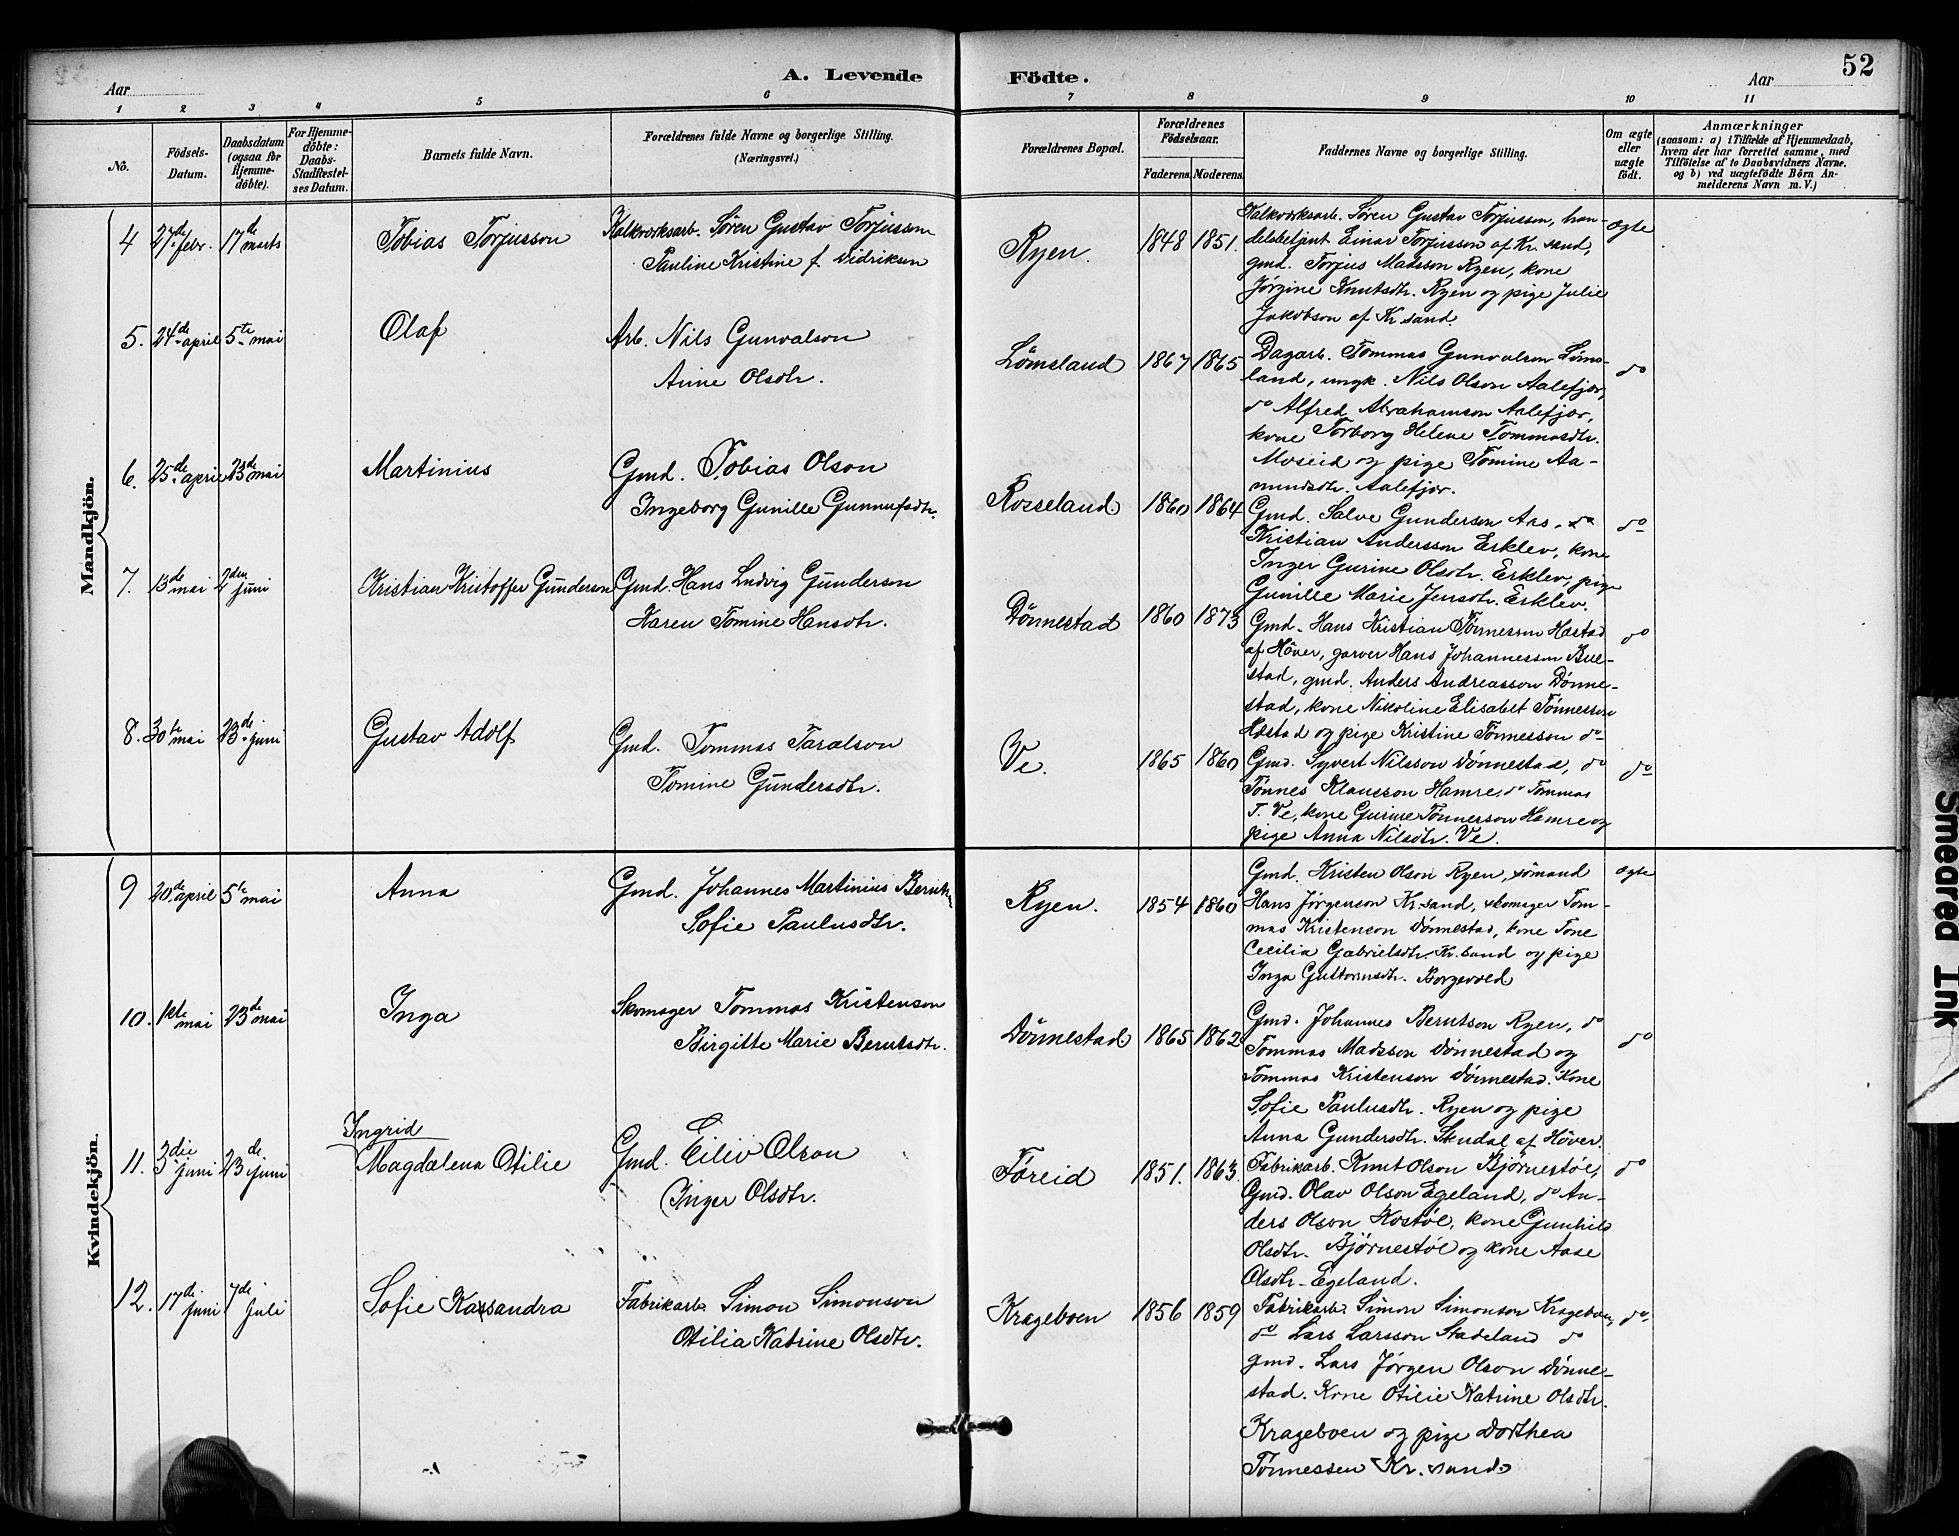 52
A. Levende Födte.
Aar
Aar
1 2 3 4 5 6 7 8 9 10 11
No.
Födsels-
Datum.
Daabsdatum
(ogsaa for
Hjemme-
döbte).
For Hjemme-
döbte:
Daabs-
Stadfæstel-
ses Datum.
Barnets fulde Navn.
Forældrenes fulde Navne og borgerlige Stilling.
(Næringsvei.)
Forældrenes Bopæl.
Forældrenes
Födselsaar.
Faderens. Moderens.
Faddernes Navne og borgerlige Stilling.
Om ægte
eller
uægte
födt.
Anmærkninger
(saasom: a) i Tilfælde af Hjemmedaab,
hvem der har forrettet samme, med
Tilföielse af to Daabsvidners Navne.
og b) ved uægtefödte Börn An-
melderens Navn m. V.)
Mandkjön.
4 27de febr. 17de marts Tobias Torjusson
Kalkværksarb. Sören Gustav Torjusson
Pauline Kristine f. Didriksen
Ryen. 1848 1851.
Kalkværksarb. Sören Gustav Torjusson, han-
delsbetjent Einar Torjusson af Kr. sand,
gmd. Torjus Madsson Ryen, kone
Jørgine Knutsdtr. Ryen og pige Julie
Jakobson af Kr sand.
ægte
5. 24de april 5te mai Olaf
Arb. Nils Gunvalson
Anne Olsdtr.
Lömsland 1867 1865
Dagarb. Tommas Gunvalson Löms-
land, ungk. Nils Olson Aalefjær,
do Alfred Abrahamson Aalefjær,
kone Torborg Helene Tommasdtr.
Moseid og pige Tomine Aa-
mundsdtr. Aalefjær.
do
6. 25de april 23de mai Martinius
Gmd. Tobias Olson
Ingeborg Gunille Gunnufsdtr.
Rosseland 1860 1864
Gmd. Salve Gunderson Aas, do
Kristian Andersson Erklev, kone
Inger Gurine Olsdtr. Erklev, pige
Gunille Marie Jensdtr. Erklev.
do
7. 13de mai 2den juni Kristian Kristoffer Gunderson
Gmd. Hans Ludvig Gunderson
Karen Tomine Hansdtr.
Dönnestad 1860 1873
Gmd. Hans Kristian Tönnesson Hæstad
af Höver, garver Hans Johannesson Bue-
stad, gmd. Anders Andreasson Dönne-
stad, kone Nikoline Elisabet Tönnesson
Hæstad og pige Kristine Tönnesson do
do
8. 30te mai 23de juni Gustav Adolf
Gmd. Tommas Taralson
Tomine Gundersdtr.
Ve. 1865 1860
Gmd. Syvert Nilsson Dönnestad, do
Tönnes Klausson Hamre, do Tommas
T. Ve, kone Gurine Tönnesson Hamre og
pige Anna Nilsdtr. Ve.
do
Kvindekjön.
9 20de april 5te mai Anna
Gmd. Johannes Martinius Berntsn
Sofie Paulusdtr.
Ryen. 1854 1860
Gmd. Kristen Olson Ryen, sömand
Hans Jørgenson Kr.sand, skomager Tom-
mas Kristenson Dönnestad, kone Tone
Cecilia Gabrielsdtr. Kr.sand og pige
Inga Guttormsdtr. Borgevold
ægte
10. 1ste mai 23de mai Inga
Skomager Tommas Kristenson
Birgitte Marie Berntsdtr.
Dönnestad 1865 1862
Gmd. Johannes Berntson Ryen, do
Tommas Madsson Dönnestad og
Tommas Kristenson Dönnestad. Kone
Sofie Paulusdtr. Ryen og pige
Anna Gundersdtr. Studal af Höver.
do
11. 3die juni 23de juni Ingrid
Magdalena Otilie
Gmd. Eiliv Olson
Inger Olsdtr.
Föreid 1851. 1863.
Fabrikarb. Knut Olson Bjørnestøl,
Gmd. Olav Olson Egeland, do An-
ders Olson Kostøl, kone Gunhild
Olsdtr. Bjørnestøl og kone Aase
Olsdtr. Egeland.
do
12. 17de juni 7de juli Sofie Kassandra
Fabrikarb. Simon Simonson
Otilia Katrine Olsdtr.
Krageboen 1856 1859
Fabrikarb. Simon Simonson Krageboen,
do Lars Larsson Stadeland do
gmd. Lars Jørgen Olson Dönne-
stad. Kone Otilie Katrine Olsdtr.
Krageboen og pige Dorthea
Tönnessen Kr. sand.
do
Smeared Ink